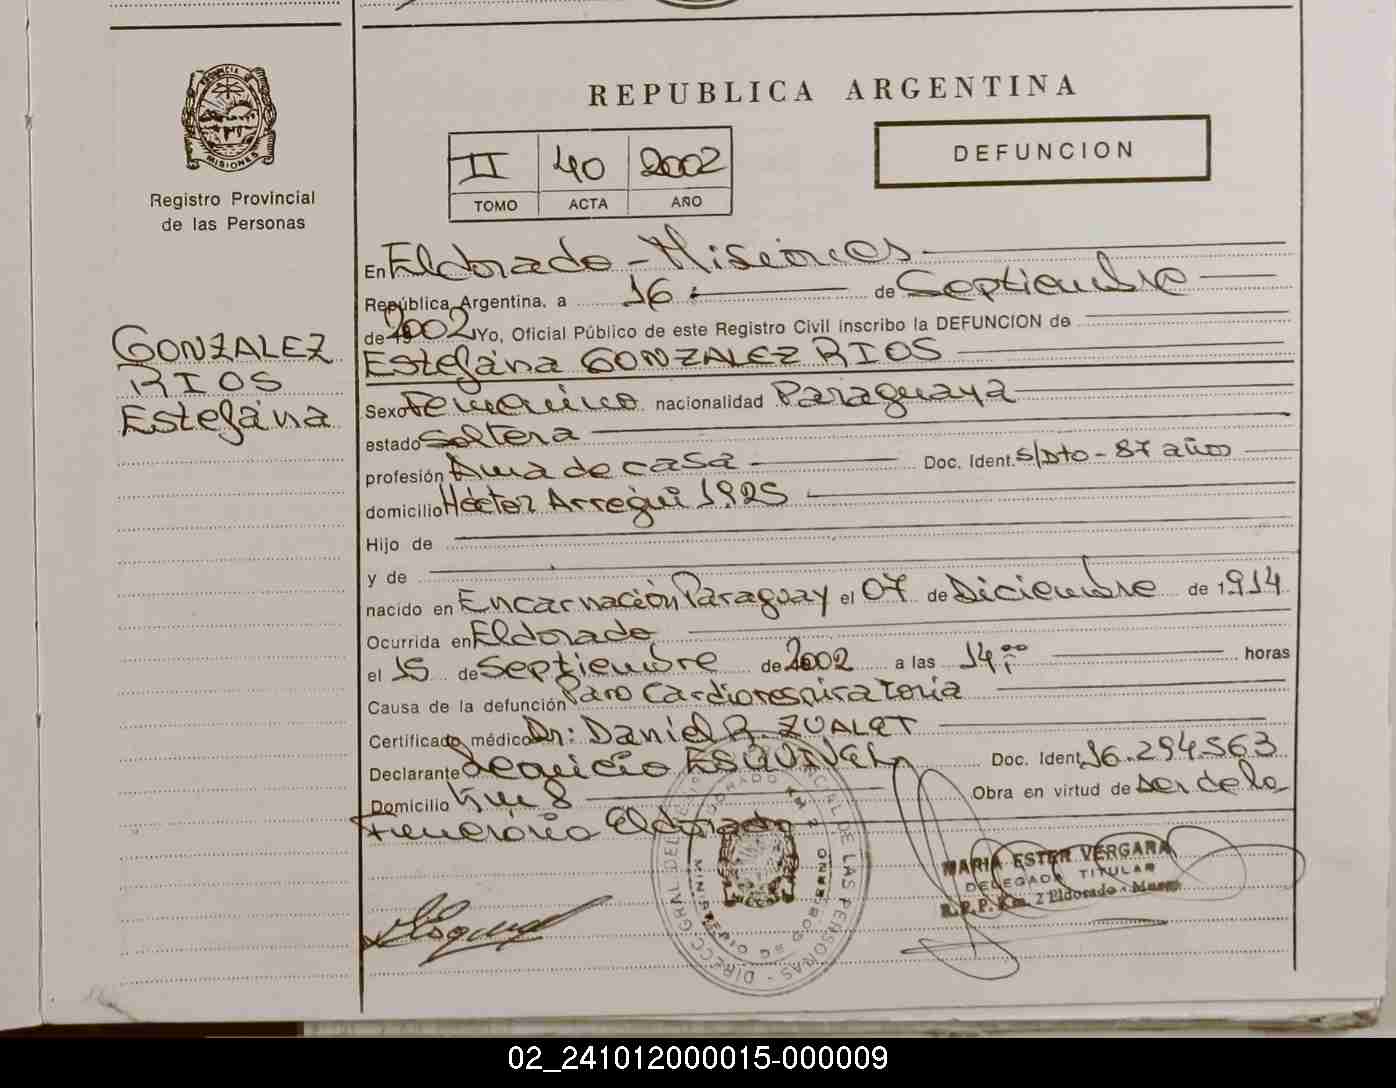 PROVINCIA DE
MISIONES
Registro Provincial
de las Personas
GONZALEZ
RIOS
Estefána
REPUBLICA ARGENTINA
II 40 2002
TOMO ACTA AÑO
DEFUNCION
En Eldorado - Misiones
República Argentina, a 16 de Septiembre
de 2002 Yo, Oficial Público de este Registro Civil inscribo la DEFUNCION de
Estefána GONZALEZ RIOS
Sexo Femenino nacionalidad Paraguaya
estado Soltera
profesión Ama de casa Doc. Ident. S/Dto - 87 años
domicilio Héctor Arregui 1925
Hijo de
y de
nacido en Encarnación Paraguay el 07 de Diciembre de 1914
Ocurrida en Eldorado
el 15 de Septiembre de 2002 a las 14,00 horas
Causa de la defunción Paro Cardiorespiratoria
Certificado médico Dr: Daniel R. ZUALET
Declarante ESQUIVEL Doc. Ident. 16.294.563
Domicilio Km 8 Obra en virtud de ser de la
Funeraria Eldorado
MARIA ESTER VERGARA
DELEGADA TITULAR
R.P.P. Km. 2 Eldorado - Mnes.
02_241012000015-000009